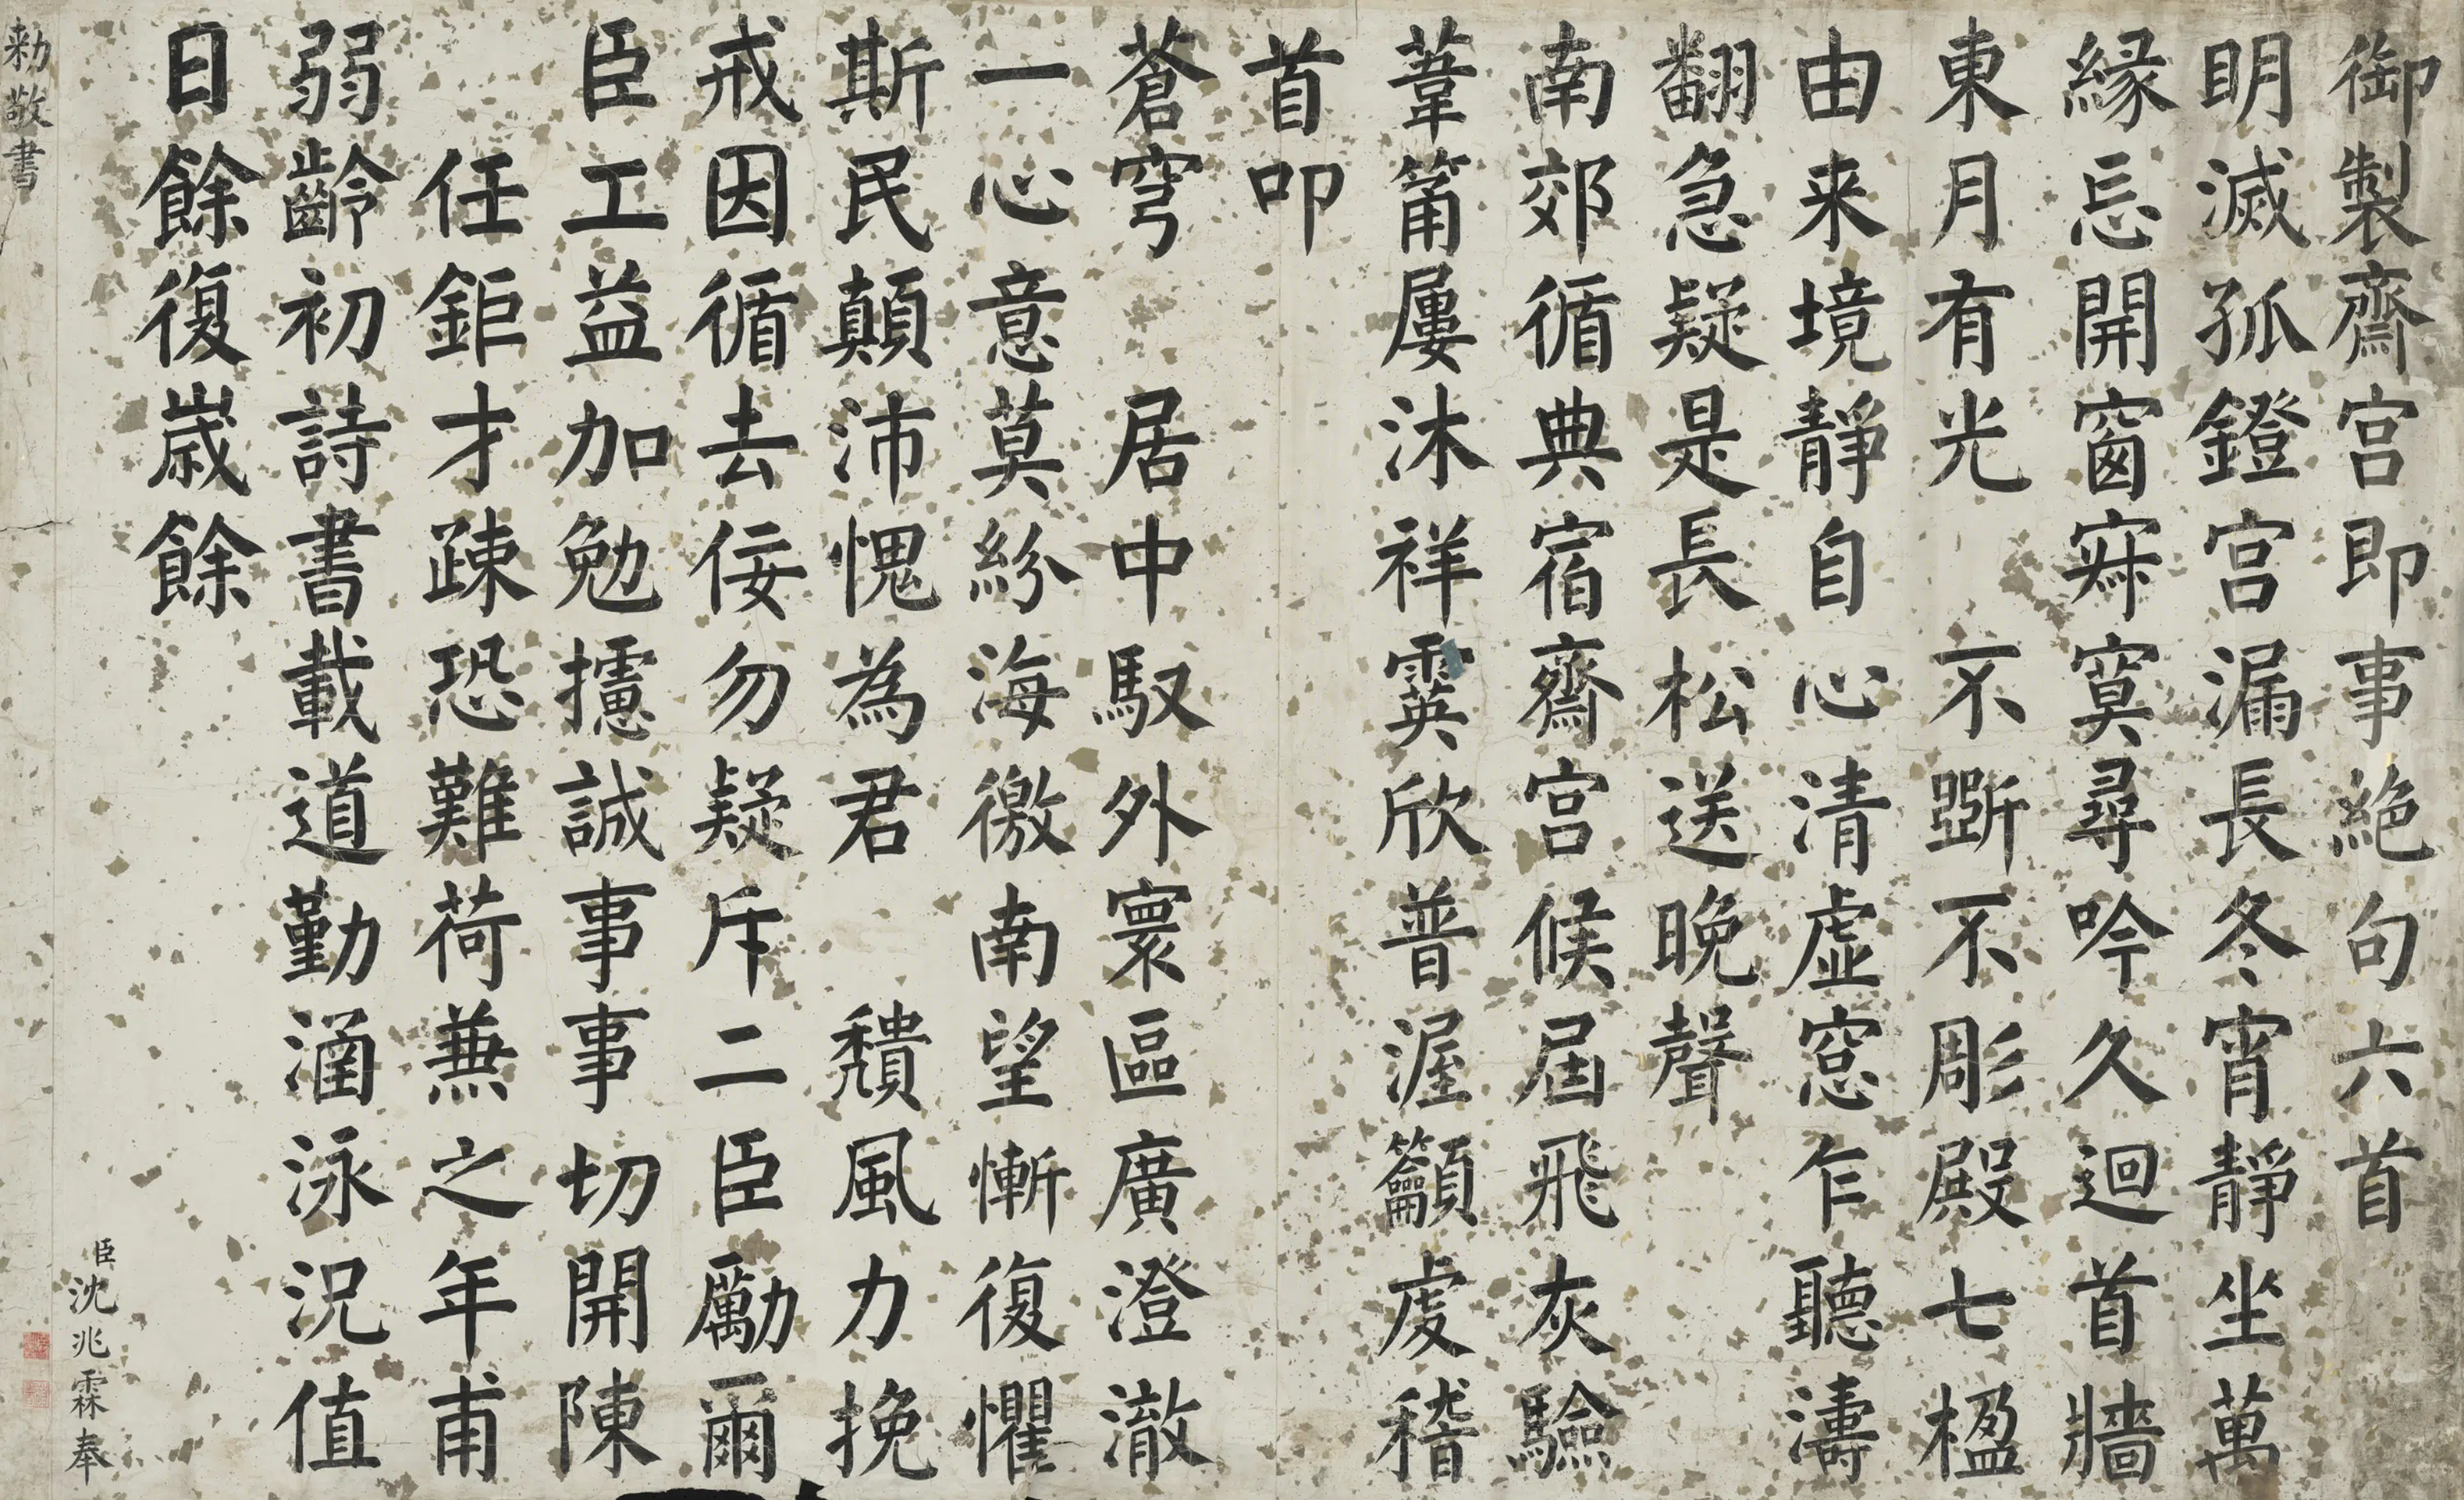 御製齋宮即事絕句六首
明滅孤鐙宮漏長冬宵靜坐萬
緣忘開窗寂寞尋吟久迴首牆
東月有光　不斲不彫殿七楹
由来境靜自心清虛窓乍聽濤
翻急疑是長松送晚聲
南郊循典宿齋宮候屆飛灰驗
葦莆屢沐祥霙欣普渥籲虔稽
首叩
蒼穹　居中馭外寰區廣澄澈
一心意莫紛海徼南望慚復懼
斯民顛沛愧為君　頹風力挽
戒因循去佞勿疑斥二臣勵爾
臣工益加勉攄誠事事切開陳
任鉅才疎恐難荷兼之年甫
弱齡初詩書載道勤涵泳況值
日餘復歲餘
臣沈兆霖奉
勅敬書